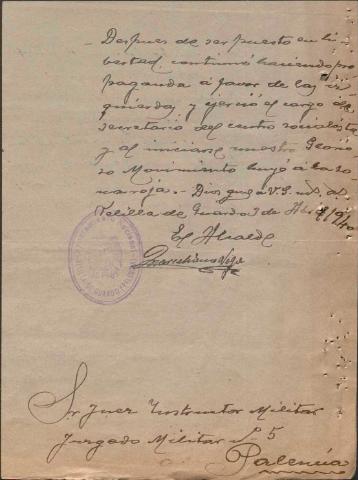 Despues de ser puesto en li
bertad, continuó haciendo pro
paganda á favor de las iz
quierdas y ejerció el cargo de
secretario del centro socialista
y al iniciarse nuestro Glorio
so Movimiento huyó á la zo
na roja.- Dios gue á V.S. m. a.
Velilla de Guardo 3 de Abril 1940
El Alcalde
Sr Juez Instructor Militar
Juzgado Militar nº 5
Palencia